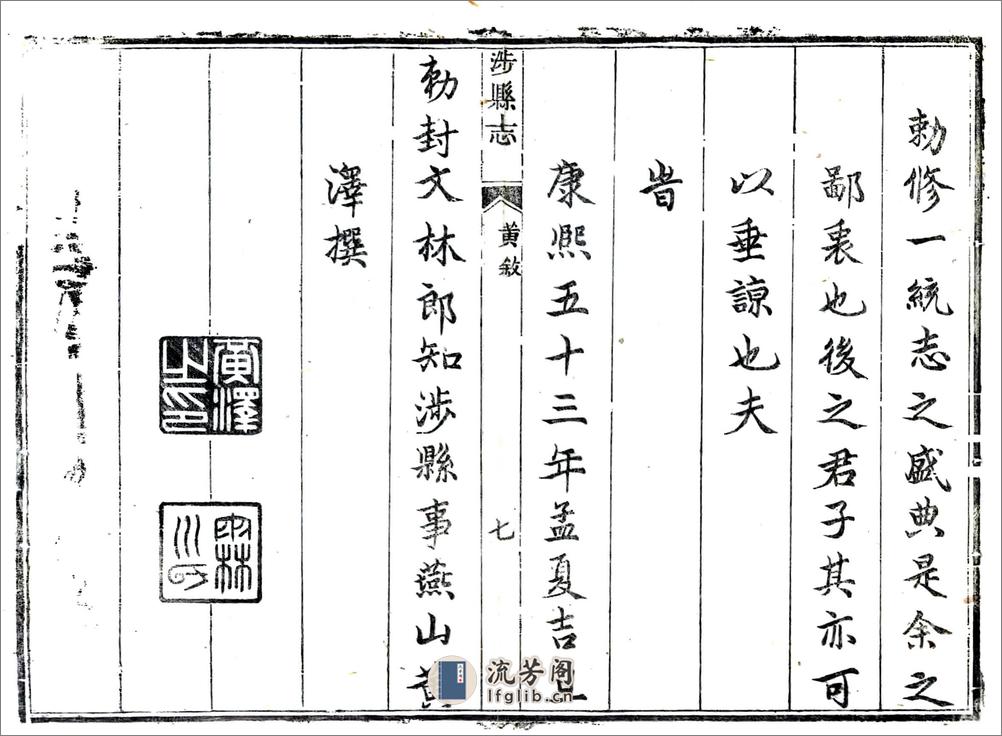 勅修一統志之盛典是余之
鄙衷也後之君子其亦可
以垂諒也夫
旹
康熙五十三年孟夏吉
涉縣志
黄敘
七
勅封文林郎知涉縣事燕山黄
澤撰
黄澤之印
流芳阁
lfglib.cn